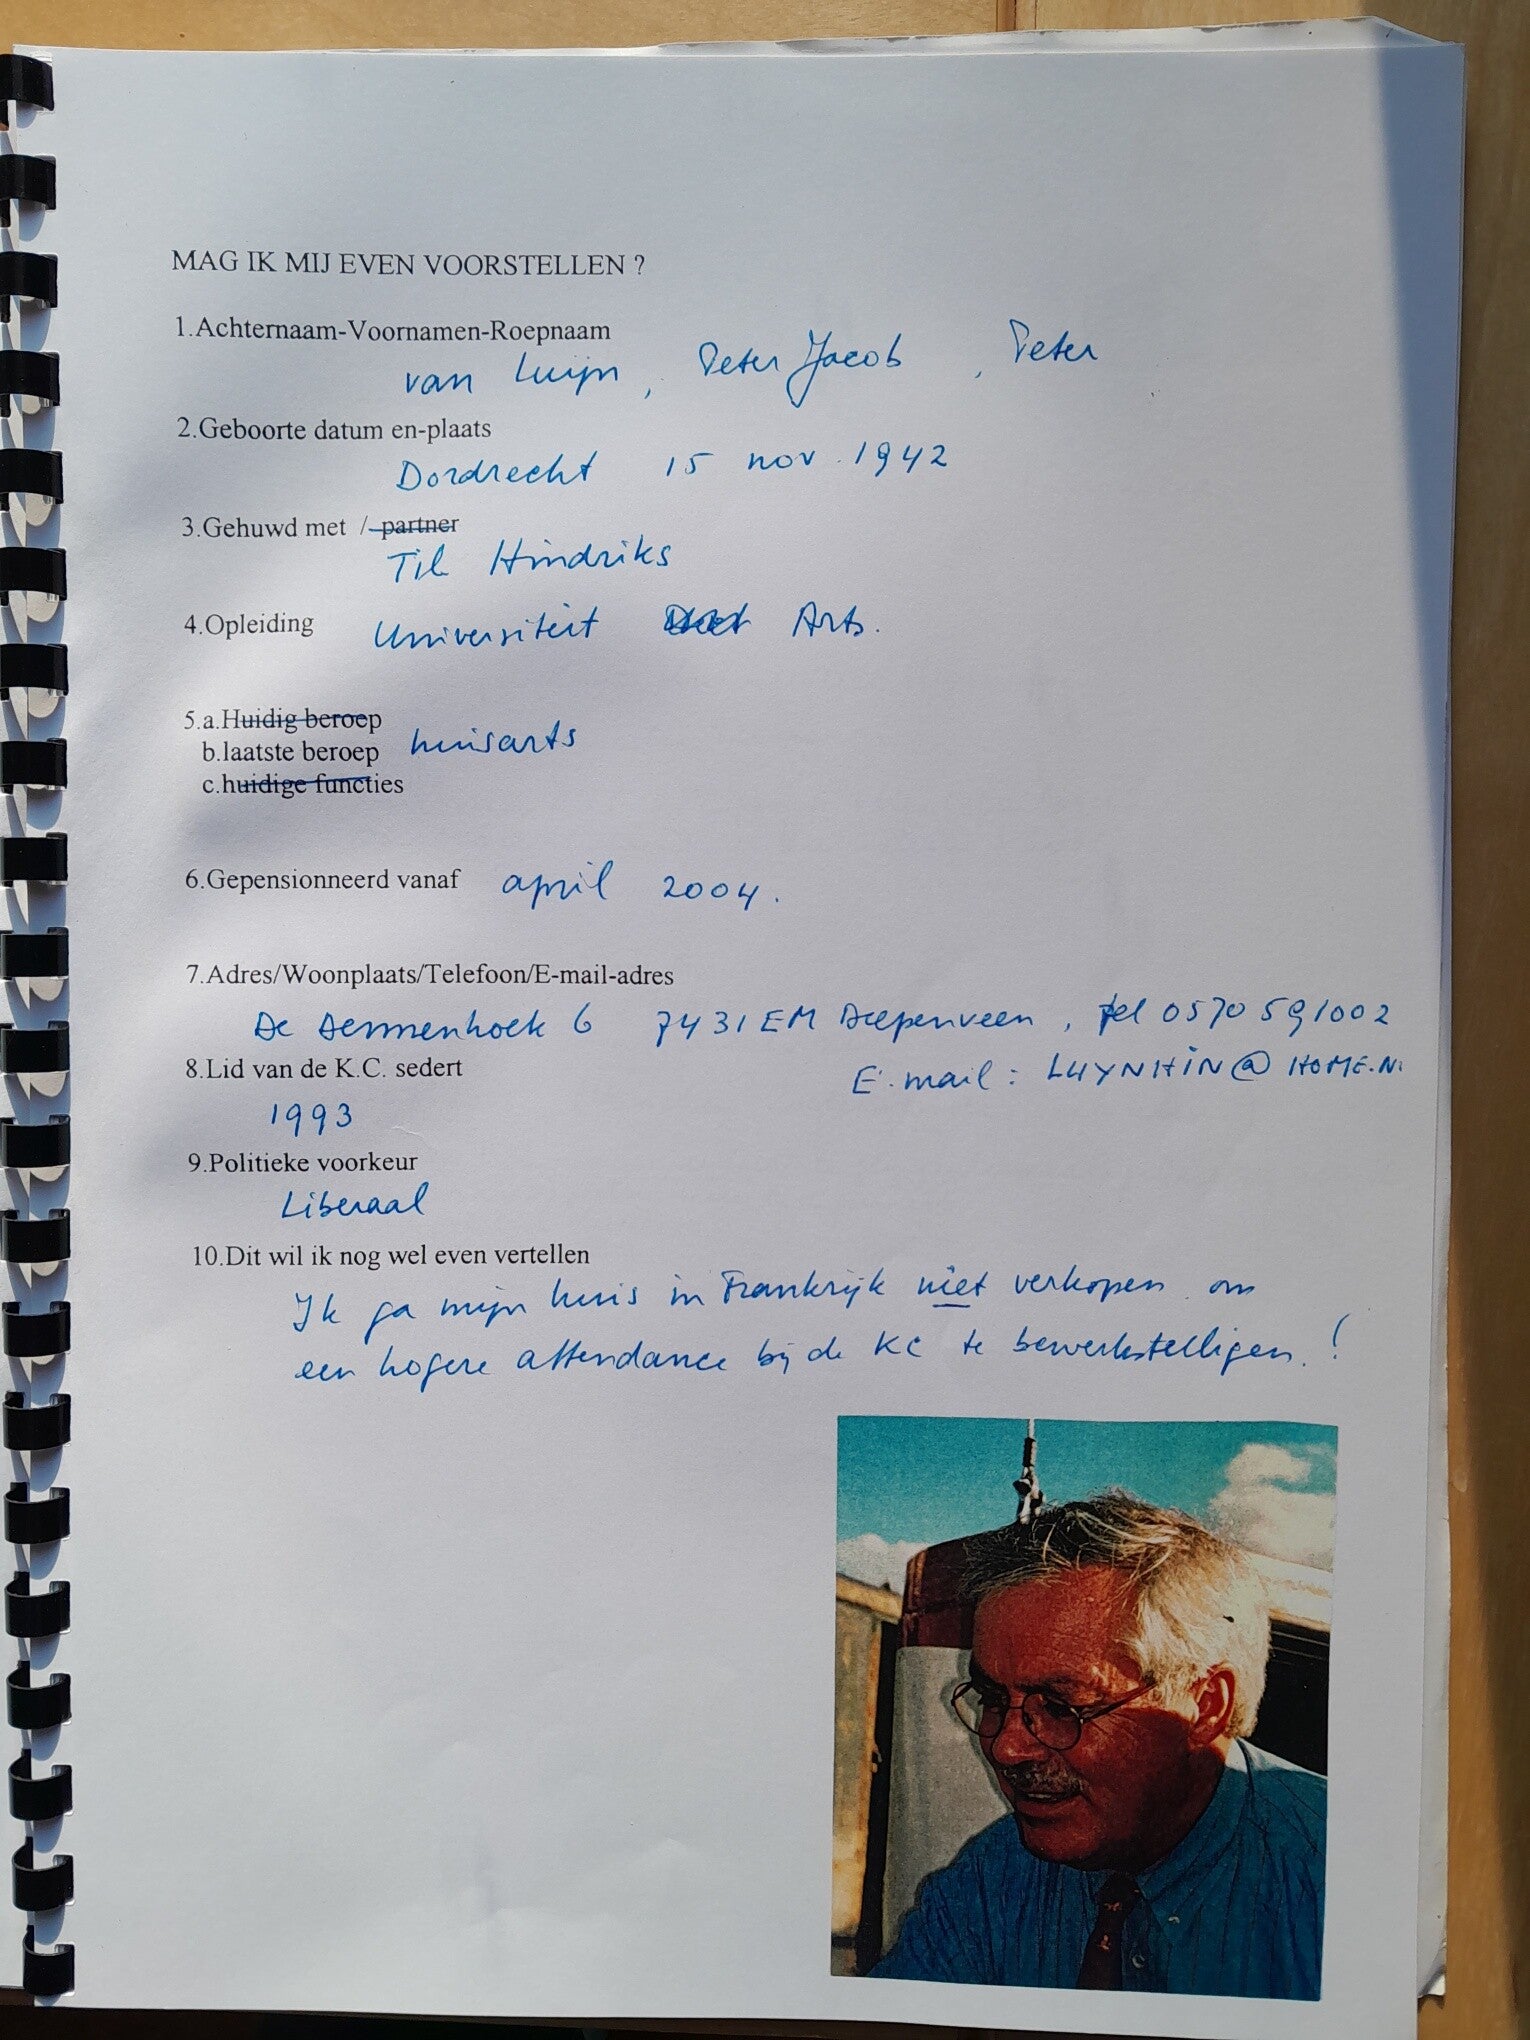 MAG IK MIJ EVEN VOORSTELLEN ?
1.Achternaam-Voornamen-Roepnaam
van Luijn, Peter Jacob, Peter
2.Geboorte datum en-plaats
Dordrecht 15 nov. 1942
3.Gehuwd met / partner
Til Hindriks
4.Opleiding Universiteit Arts.
5.a.Huidig beroep
b.laatste beroep huisarts
c.huidige functies
6.Gepensionneerd vanaf april 2004.
7.Adres/Woonplaats/Telefoon/E-mail-adres
De Dermenhoek 6 7431 EM Diepenveen, tel 0570 591002
8.Lid van de K.C. sedert
E.mail: LUYNHIN@HOME.NL
1993
9.Politieke voorkeur
Liberaal
10.Dit wil ik nog wel even vertellen
Ik ga mijn huis in Frankrijk niet verkopen om
een hogere attendance bij de KC te bewerkstelligen.!